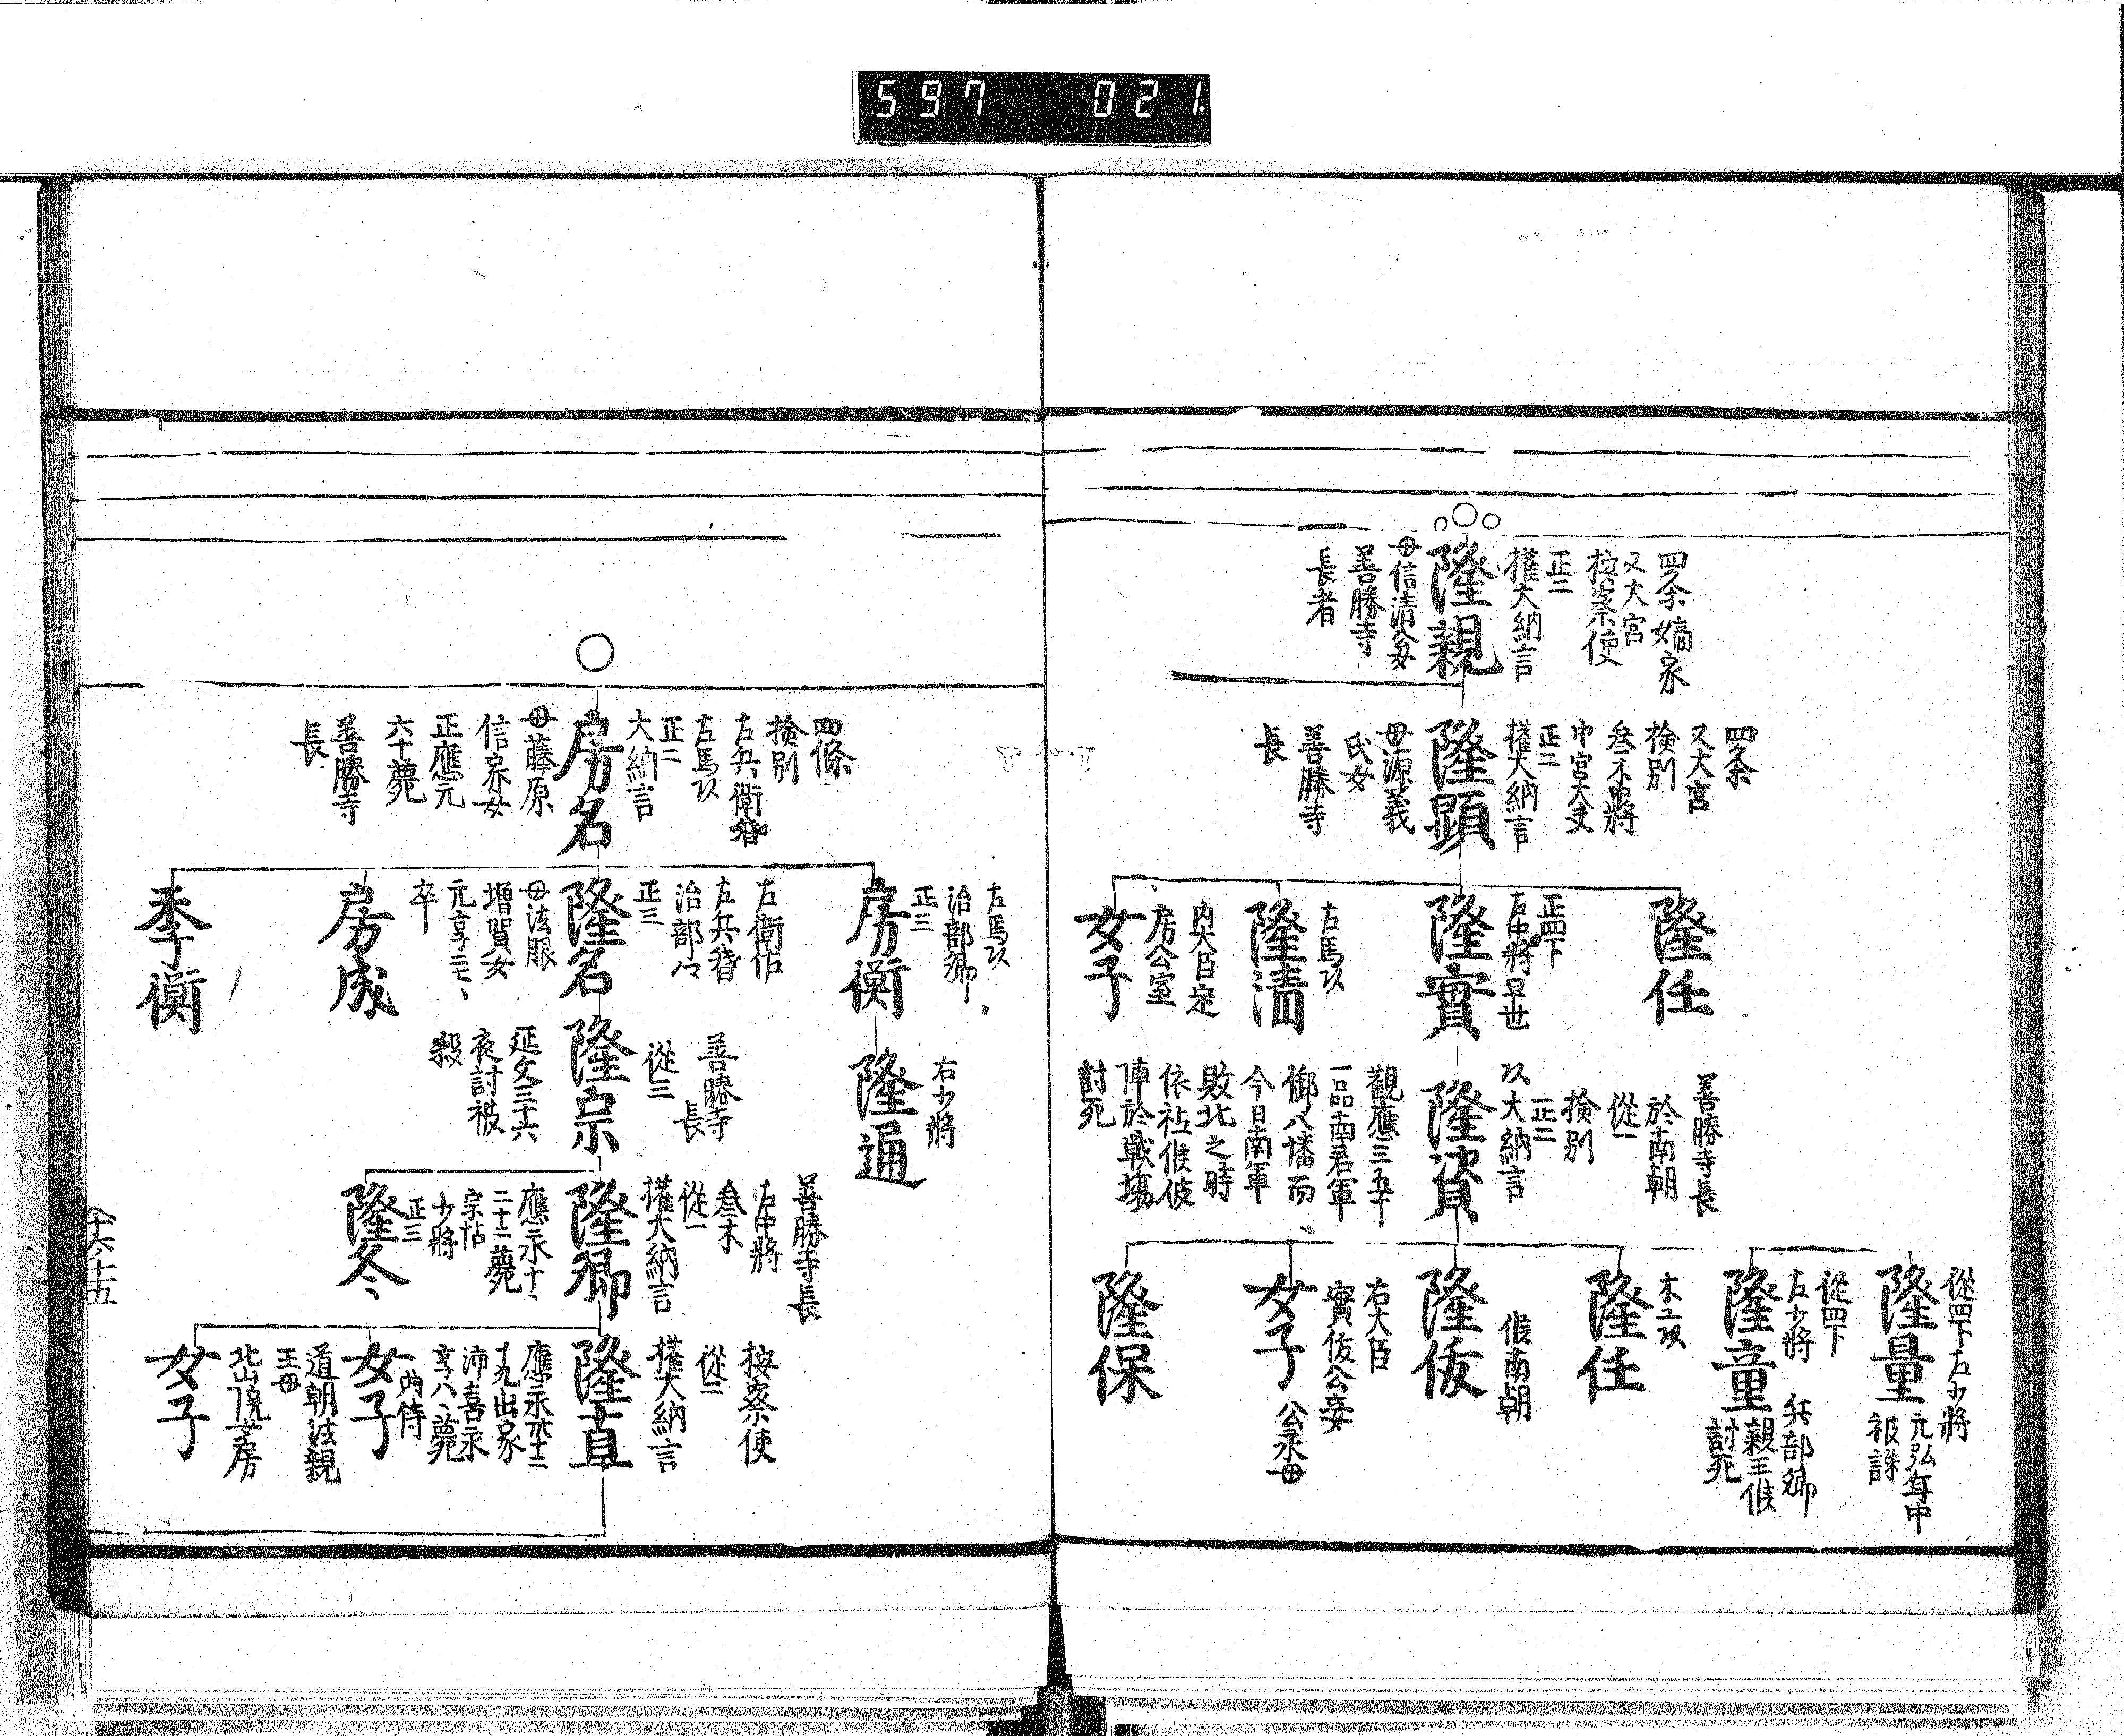 597 021
四条嫡家
又大宮
按察使
正二
権大納言
隆親
母信清公女
善勝寺
長者
四条
又大宮
検別
参木中将
中宮大夫
正二
権大納言
隆顕
母源義
氏女
善勝寺
長
隆任
正四下
左中将早世
隆實
左馬頭
隆清
内大臣定
房公室
女子
善勝寺長
於南朝
從一
検別
正二
大納言
隆資
觀應三五十
一品南君軍
御八幡而
今日南軍
敗北之時
依祗候彼
陣於戰場
討死
從四下左少将
隆量
元弘年中
被誅
從四下
左少将
隆童
兵部卿
親王候
討死
木工頭
隆任
候南朝
隆俊
右大臣
實俊公妾
女子
公永母
隆保
四條
検別
左兵衛督
左馬頭
正二
大納言
房名
母藤原
信家女
正應元
六十薨
善勝寺
長
左馬頭
治部卿
正三
房衡
右少将
隆通
左衛佐
左兵督
治部々
正三
隆名
母法眼
増賀女
元亨二七、
卒
房成
季衡
善勝寺
長
從三
隆宗
延文三十六
夜討被
殺
善勝寺長
左中将
参木
從一
權大納言
隆郷
應永十、
二十二薨
宗怗
少将
正三
隆冬
按察使
從二
權大納言
隆直
應永
十九出家
沛喜永
享八、薨
内侍
女子
道朝法親
王母
北山院女房
女子
十六 十五